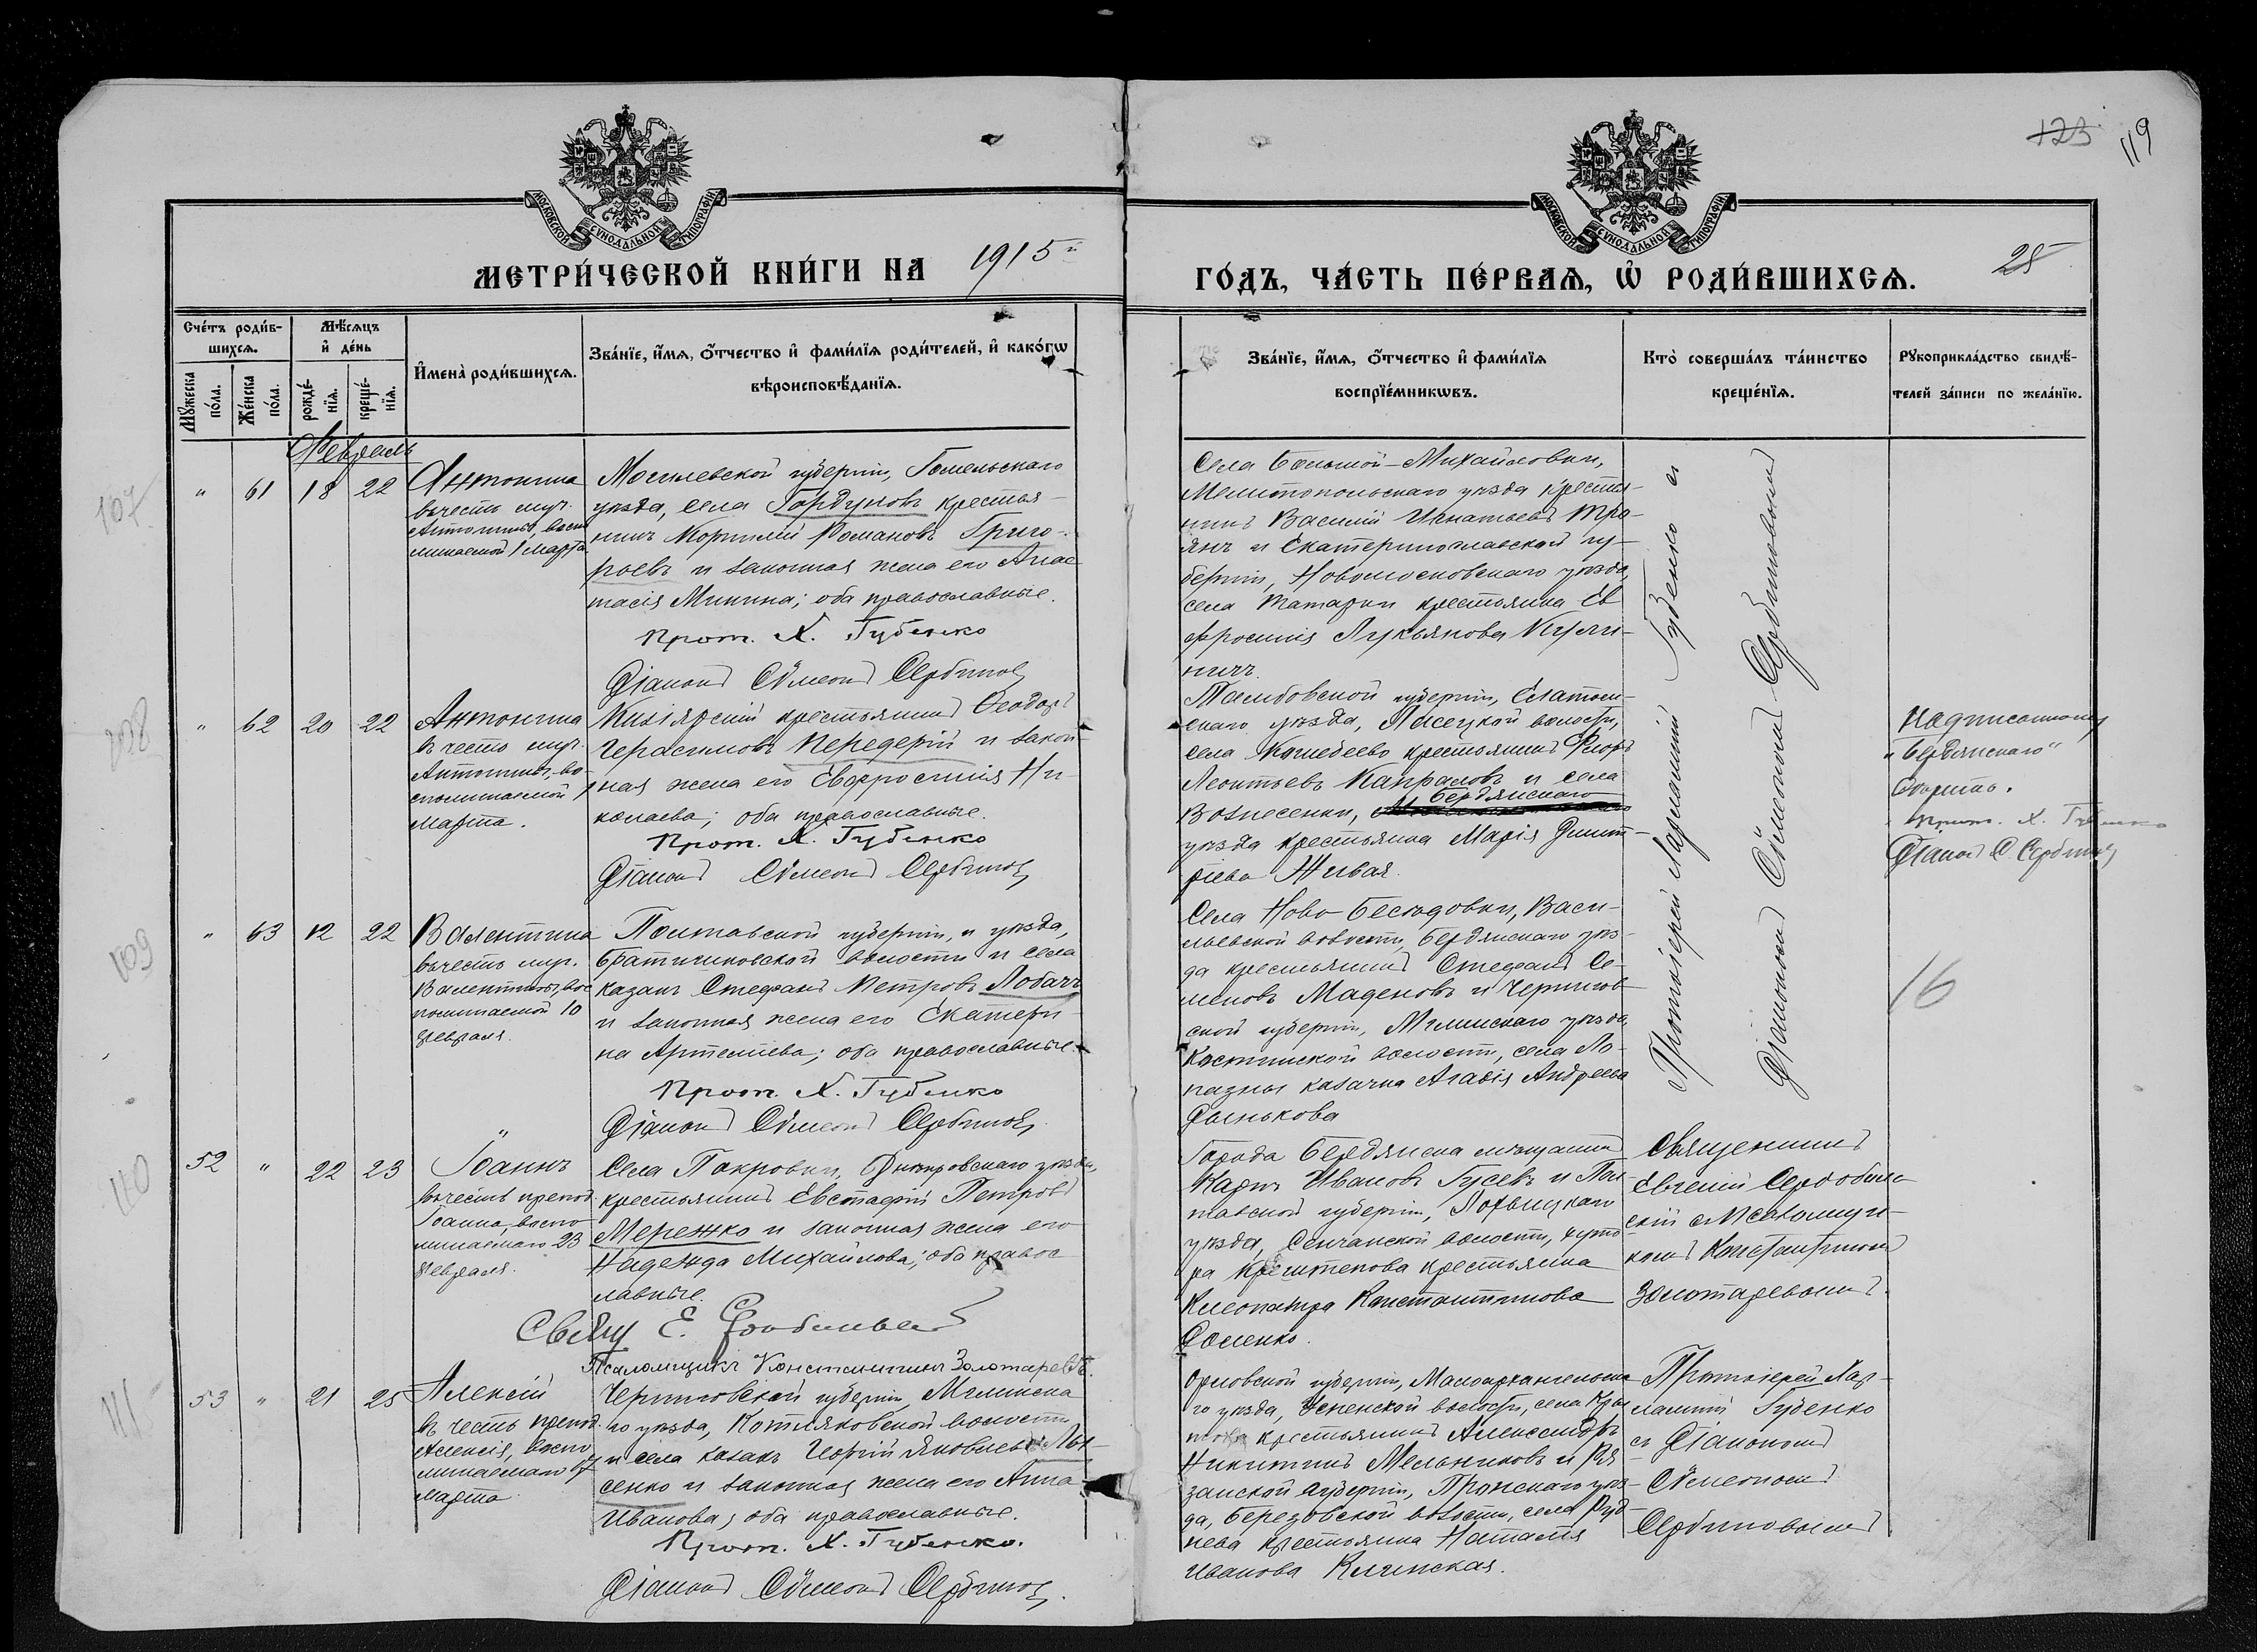 123
119
МОСКОВСКОЙ СѴНОДАЛЬНОЙ ТИПОГРАФІИ
МОСКОВСКОЙ СѴНОДАЛЬНОЙ ТИПОГРАФІИ
МЕТРИ́ЧЕСКОЙ КНИ́ГИ НА 1915й
ГО́ДЪ, ЧА́СТЬ ПЕ́РВАѦ, Ѡ҆ РОДИ́ВШИХСѦ.
28
Сче́тъ роди́в-
шихсѧ.
Мѣ́сѧцъ
и҆ де́нь
Мꙋ́жеска
по́ла.
Же́нска
по́ла.
рожде́-
нїѧ.
креще́-
нїѧ.
И҆мена̀ роди́вшихсѧ.
Зва́нїе, и҆́мѧ, ѻ҆́тчество и҆ фами́лїѧ роди́телей, и҆ како́гѡ
вѣроисповѣ́данїѧ.
Зва́нїе, и҆́мѧ, ѻ҆́тчество и҆ фами́лїѧ
воспрїе́мникѡвъ.
Кто̀ соверша́лъ та́инство
креще́нїѧ.
Рꙋкоприкла́дство свидѣ́-
телей за́писи по жела́нїю.
Февраль
107
" 61 18 22
Антонина
въ честь муч.
Антонины, воспо
минаемой 1 Марта
Могилевской губерніи, Гомельскаго
уѣзда, села Гордуновъ крестья-
нинъ Корнилій Романовъ Григо-
рьевъ и законная жена его Анас
тасія Минина; оба православные.
Прот. Х. Губенко
Діаконъ Сѵмеонъ Сербиновъ
Села Большой-Михайловки,
Мелитопольскаго уѣзда крестья-
нинъ Василій Игнатьевъ Тро-
янъ и Екатеринославской гу-
берніи, Новомосковскаго уѣзда,
села Татарки крестьянка Ев
фросинія Лукьянова Кули-
ничъ.
Протоіерей Харлампій Губенко съ
Діакономъ Сѵмеономъ Сербиновымъ
108
" 62 20 22
Антонина
въ честь муч.
Антонины, во-
споминаемой 1
Марта.
Кизіярскій крестьянинъ Ѳеодоръ
Герасимовъ Передерій и закон-
ная жена его Евфросинія Ни-
колаева; оба православные.
Прот. Х. Губенко
Діаконъ Сѵмеонъ Сербиновъ
Тамбовской губерніи, Елатом-
скаго уѣзда,
волости,
села
крестьянинъ Флоръ
Леонтьевъ Капраловъ и села
Вознесенки, Бердянскаго
уѣзда крестьянка Марія Димит-
ріева Живая.
Надписанному
"Бердянскаго"
вѣрить.
Прот. Х. Губенко
Діаконъ С. Сербиновъ
109
" 63 12 22
Валентина
въ честь муч.
Валентины, вос
поминаемой 10
февраля.
Полтавской губерніи, и уѣзда,
Братешковской волости и села
казакъ Стефанъ Петровъ Лобачъ
и законная жена его Екатери-
на Артеміева; оба православные.
Прот. Х. Губенко
Діаконъ Сѵмеонъ Сербиновъ
Села Ново-Бесѣдовки, Васи-
льевской волости, Бердянскаго уѣз-
да крестьянинъ Стефанъ Се-
меновъ Маденовъ и Чернигов-
ской губерніи, Мглинскаго уѣзда,
волости, села Ло-
пазны казачка Агаѳія Андреева
Дынькова
16
110
52 " 22 23
Іоаннъ
въ честь препод.
Іоанна, воспо-
минаемаго 23
февраля.
Села Покровки, Днѣпровскаго уѣзда,
крестьянинъ Евстафій Петровъ
Мережко и законная жена его
Надежда Михайлова; оба правос
лавные.
Свящ Е.
Псаломщикъ Константинъ Золотаревъ.
Города Бердянска мѣщанинъ
Карпъ Ивановъ Гусевъ и Пол-
тавской губерніи, Лохвицкаго
уѣзда, Сенчанской волости, хуто
ра
крестьянка
Клеопатра Константинова
Доценко.
Священникъ
Евгеній
скій съ Псаломщи-
комъ Константиномъ
Золотаревымъ.
111
53 " 21 25
Алексій
въ честь препод.
Алексія, воспо
минаемаго 17
марта.
Черниговской губерніи, Мглинска
го уѣзда, Котляковской волости
и села казакъ Георгій Яковлевъ Лы-
сенко и законная жена его Анна
Иванова; оба православные.
Прот. Х. Губенко.
Діаконъ Сѵмеонъ Сербиновъ.
Орловской губерніи, Малоархангельска
го уѣзда, Успенской волости, села
крестьянинъ Александръ
Никитинъ Мельниковъ и Ря-
занской губерніи, Пронскаго уѣз-
да, Березовской волости, села Руд-
нева крестьянка Наталія
Иванова Клинская.
Протоіерей Хар-
лампій Губенко
съ Діакономъ
Сѵмеономъ
Сербиновымъ